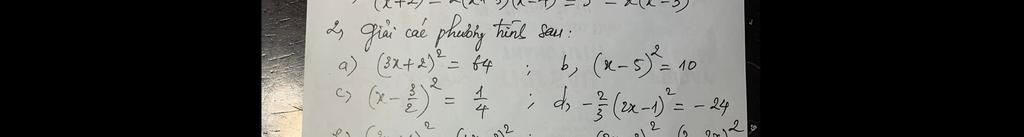 (x+2) - 2(x+3)(x-4) = 5 - x(x-3)
2, Giải các phương trình sau:
a) (3x+2)² = 64 ; b, (x-5)² = 10
c) (x - 3/2)² = 1/4 ; d, -2/3 (2x-1)² = -24